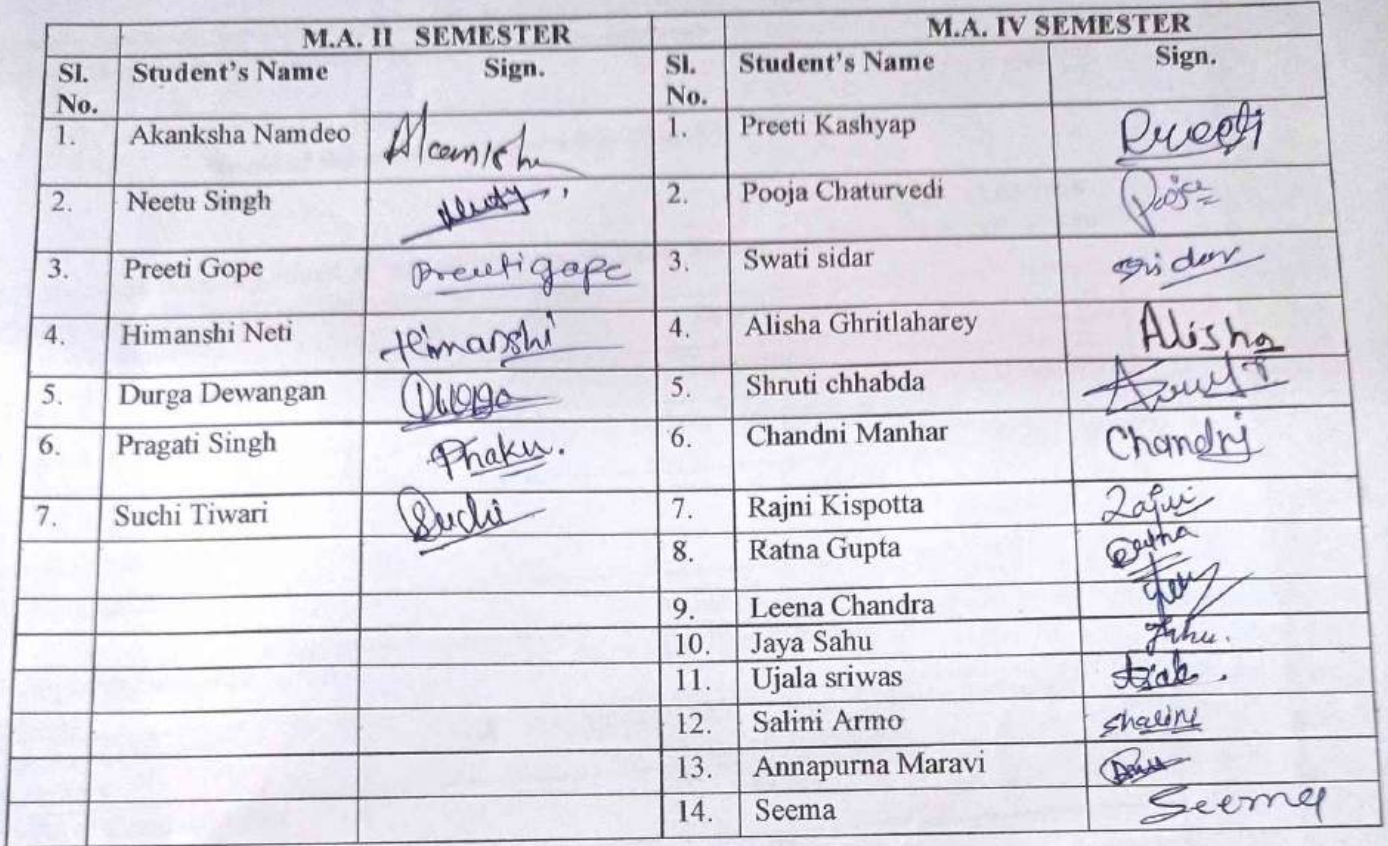 M.A. II SEMESTER M.A. IV SEMESTER
Sl. No. Student's Name Sign. Sl. No. Student's Name Sign.
1. Akanksha Namdeo 1. Preeti Kashyap Preeti
2. Neetu Singh 2. Pooja Chaturvedi Pooja
3. Preeti Gope Preeti gope 3. Swati sidar sidar
4. Himanshi Neti Himanshi 4. Alisha Ghritlaharey Alisha
5. Durga Dewangan Durga 5. Shruti chhabda
6. Pragati Singh 6. Chandni Manhar Chandni
7. Suchi Tiwari Suchi 7. Rajni Kispotta Rajni
8. Ratna Gupta Ratna
9. Leena Chandra
10. Jaya Sahu
11. Ujala sriwas
12. Salini Armo Shalini
13. Annapurna Maravi
14. Seema Seema